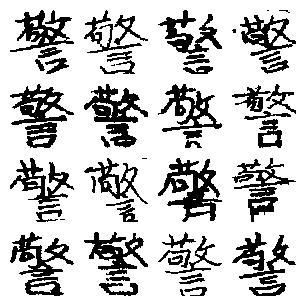 警警警警
警警警警
警警警警
警警警警